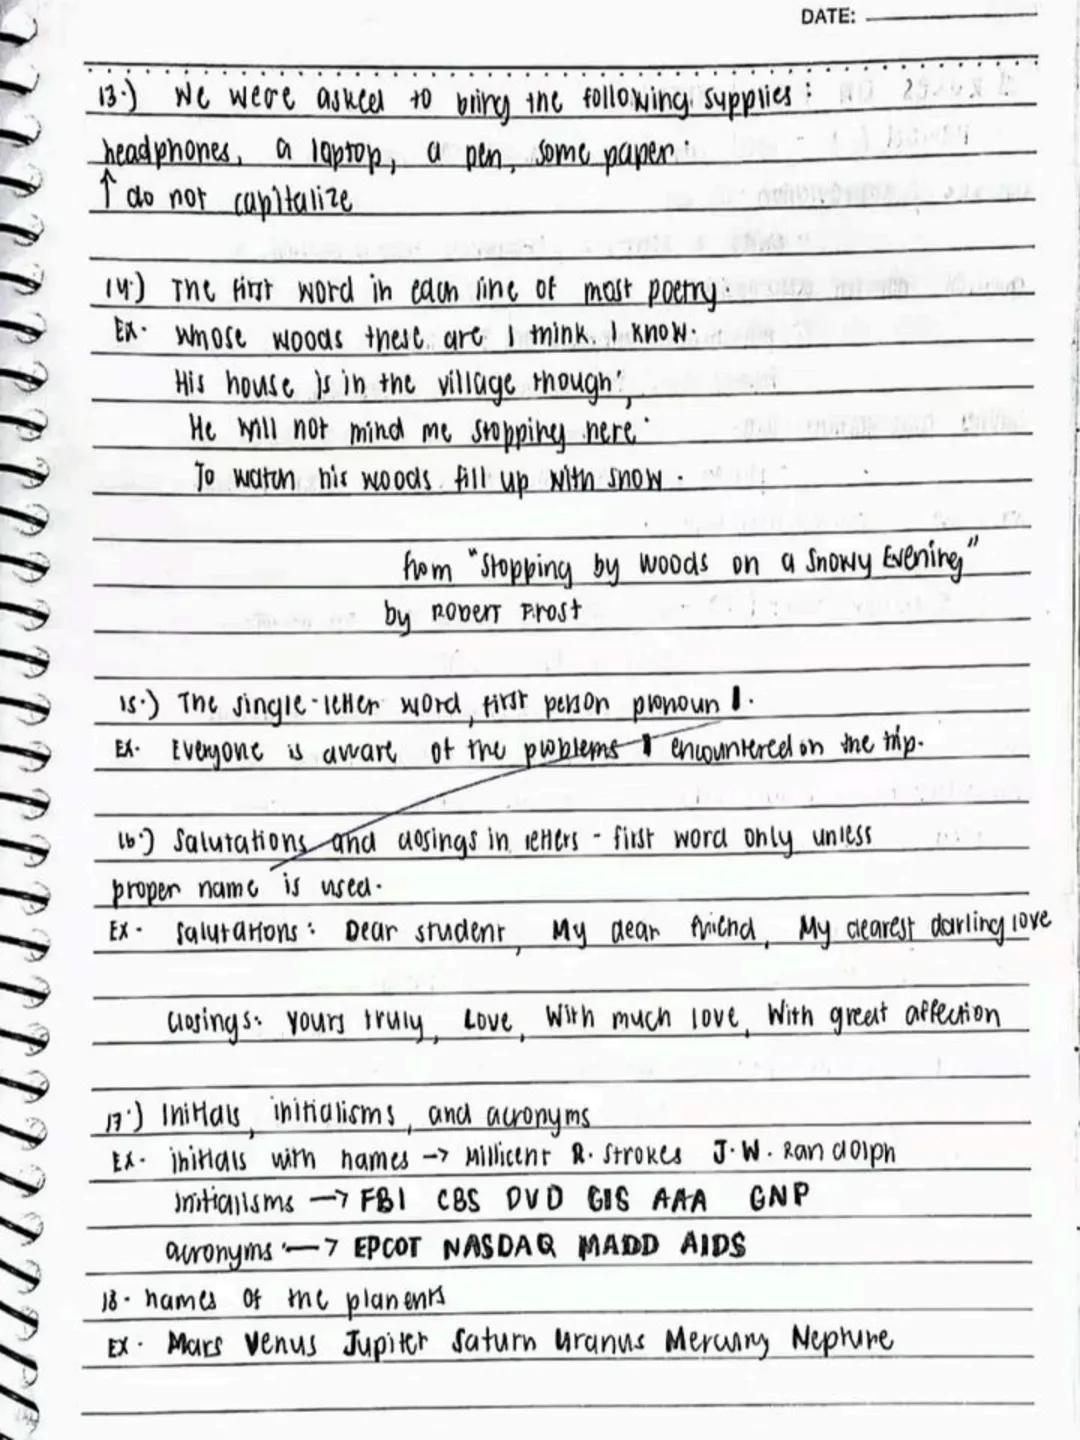 DATE:
13.) We were asked to bring the following supplies:
headphones, a laptop, a pen, some paper.
↑ do not capitalize
14.) The first word in each line of most poetry
Ex. Whose woods these are I think I know.
His house is in the village though;
He will not mind me stopping here
To watch his woods fill up with snow.
from "Stopping by Woods on a Snowy Evening"
by Robert Frost
15.) The single-letter word, first person pronoun I.
Ex. Everyone is aware of the problems I encountered on the trip.
16.) Salutations and closings in letters - first word only unless
proper name is used.
Ex. Salutations: Dear student, My dear friend, My dearest darling love
Closings: Yours truly, Love, With much love, With great affection
17.) Initials, initialisms, and acronyms
Ex. initials with names → Millicent R. Strokes J.W. Randolph
initialisms → FBI CBS DVD GIS AAA GNP
acronyms → EPCOT NASDAQ MADD AIDS
18. names of the planents
Ex. Mars Venus Jupiter Saturn Uranus Mercury Nepture